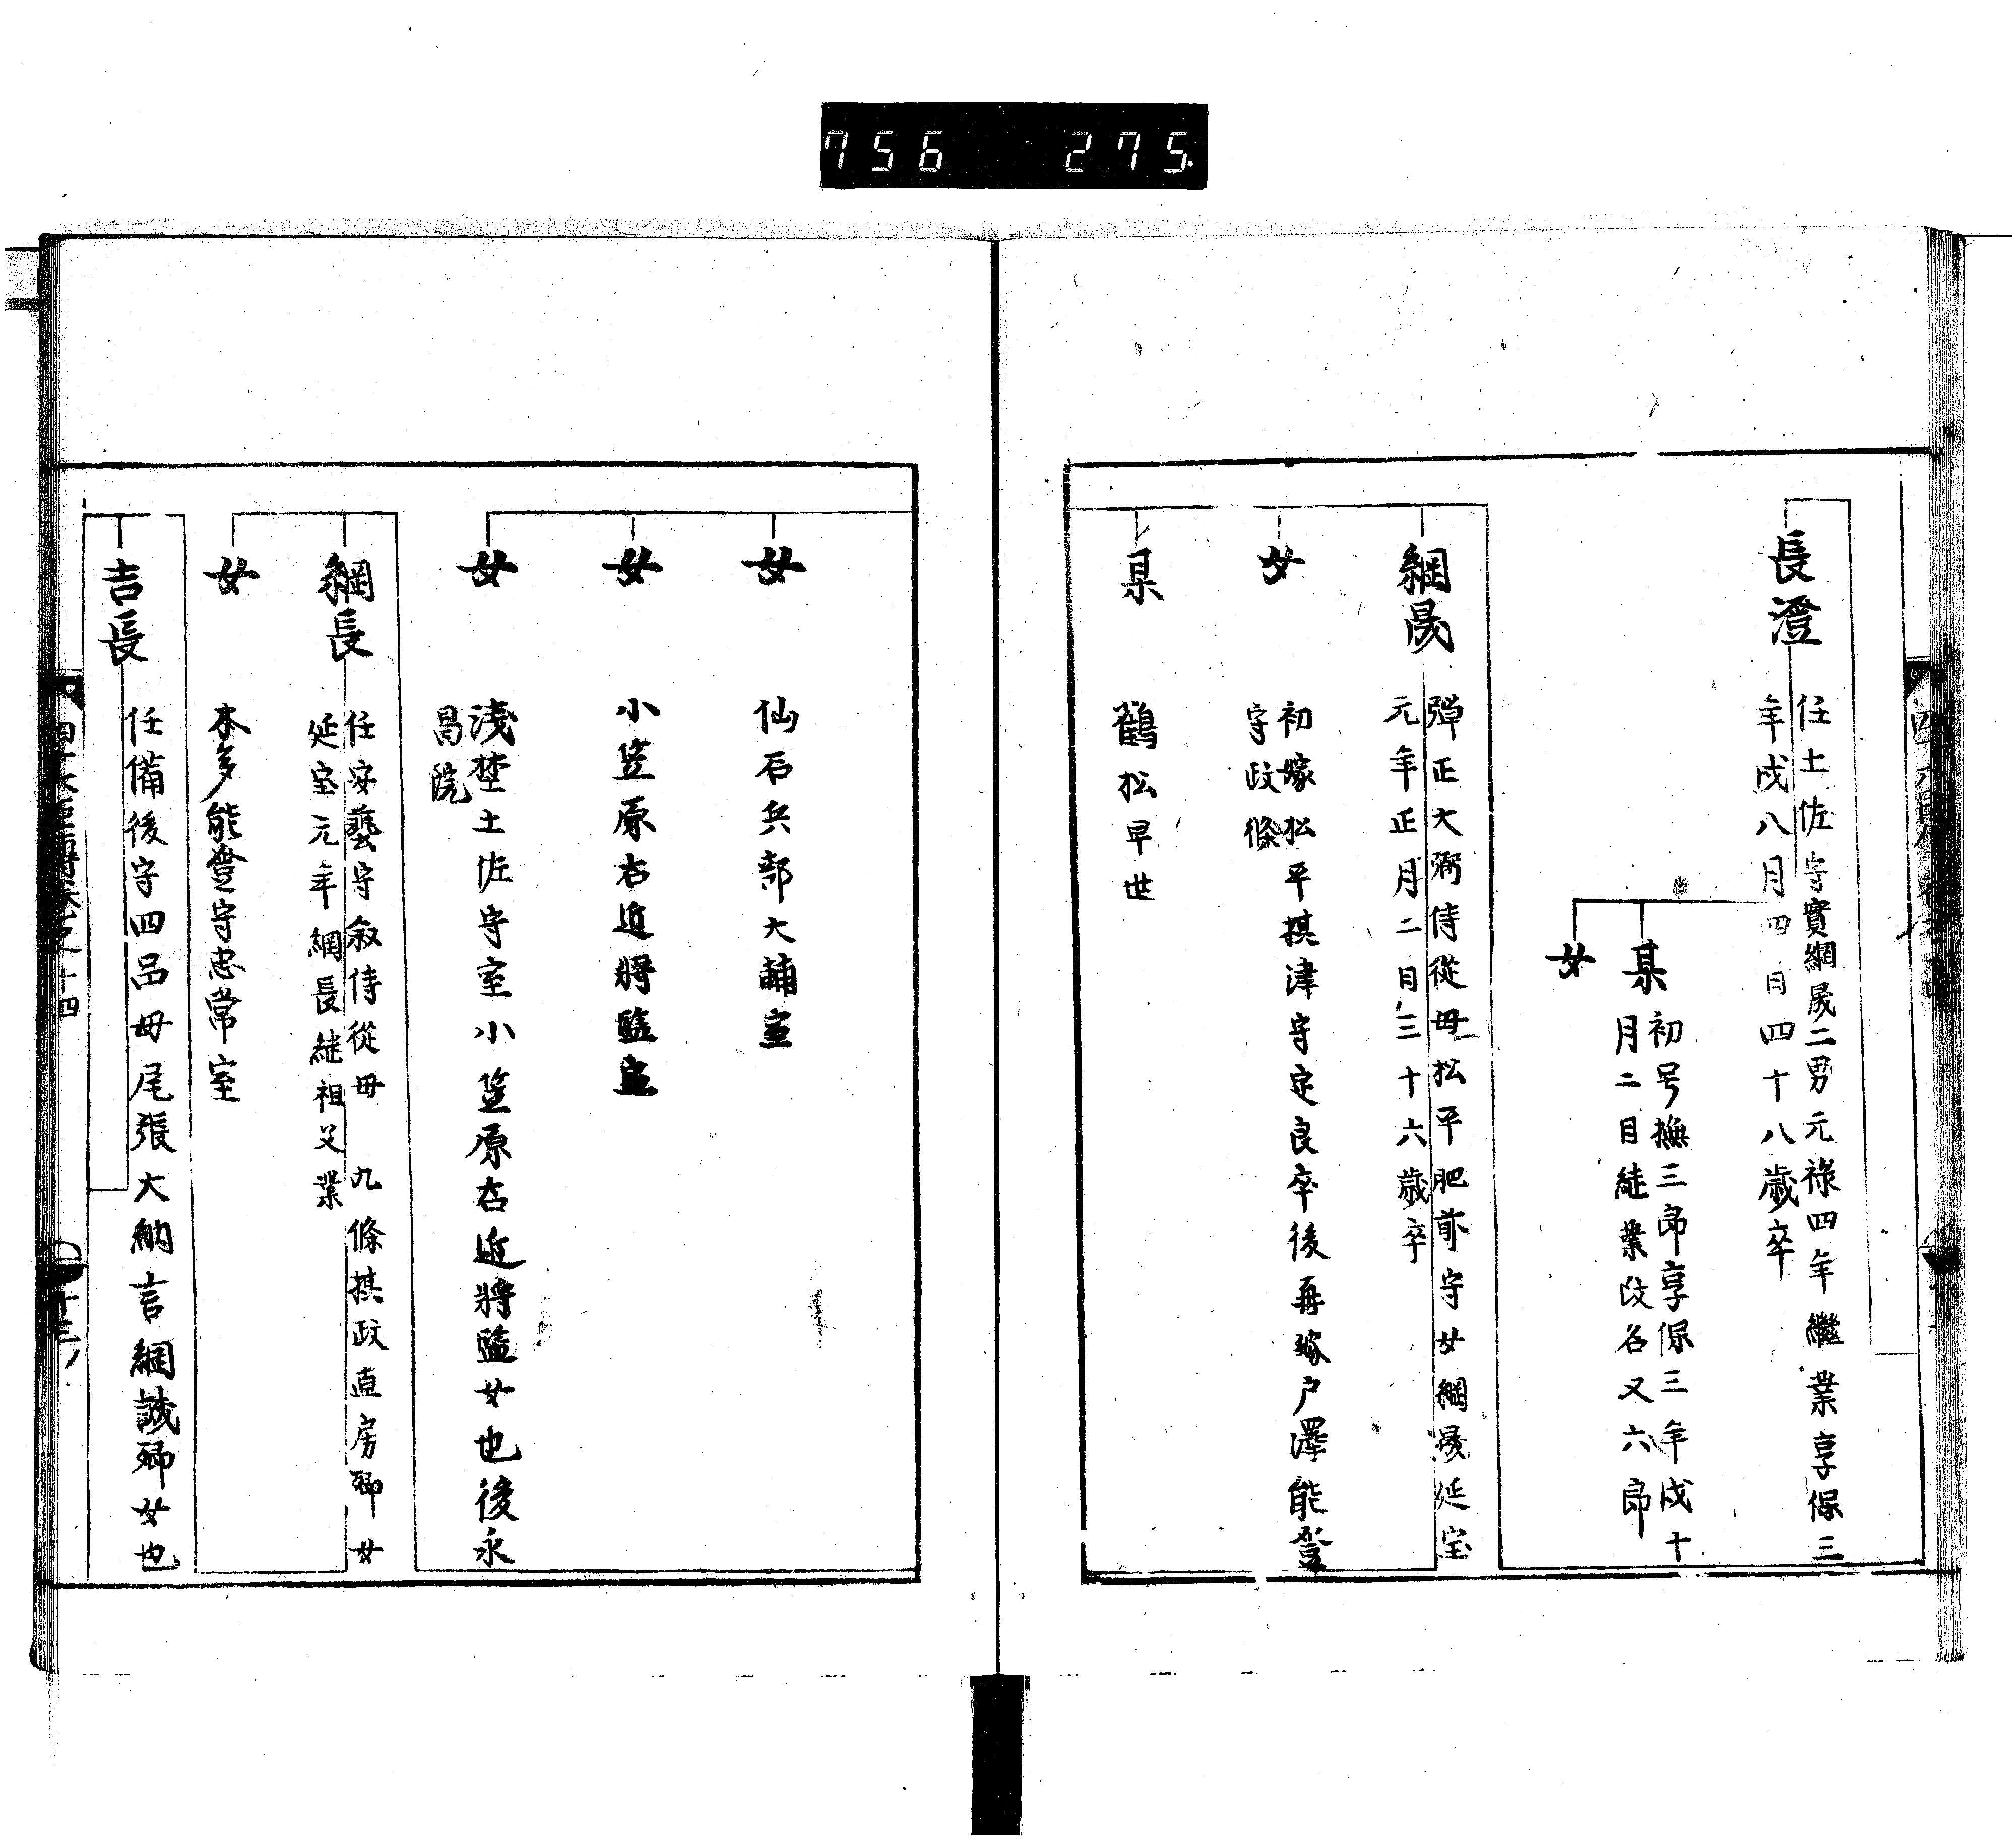 756 275.
長澄
任土佐守實綱晟二男元禄四年繼業享保三
年戌八月四日四十八歳卒
某
初号撫三郎享保三年戌十
月二日継業改名又六郎
女
綱晟
弾正大弼侍從母松平肥前守女綱晟延宝
元年正月二日三十六歳卒
女
初嫁松平摂津守定良卒後再嫁戸澤能登
守政條
某
鶴松早世
女
仙石兵部大輔室
女
小笠原右近將監室
女
淺埜土佐守室小笠原右近將監女也後永
昌院
綱長
任安藝守叙侍從母 九條摂政直房卿女
延宝元年綱長継祖父業
女
本多能登守忠常室
吉長
任備後守四品母尾張大納言綱誠卿女也
十四
十三